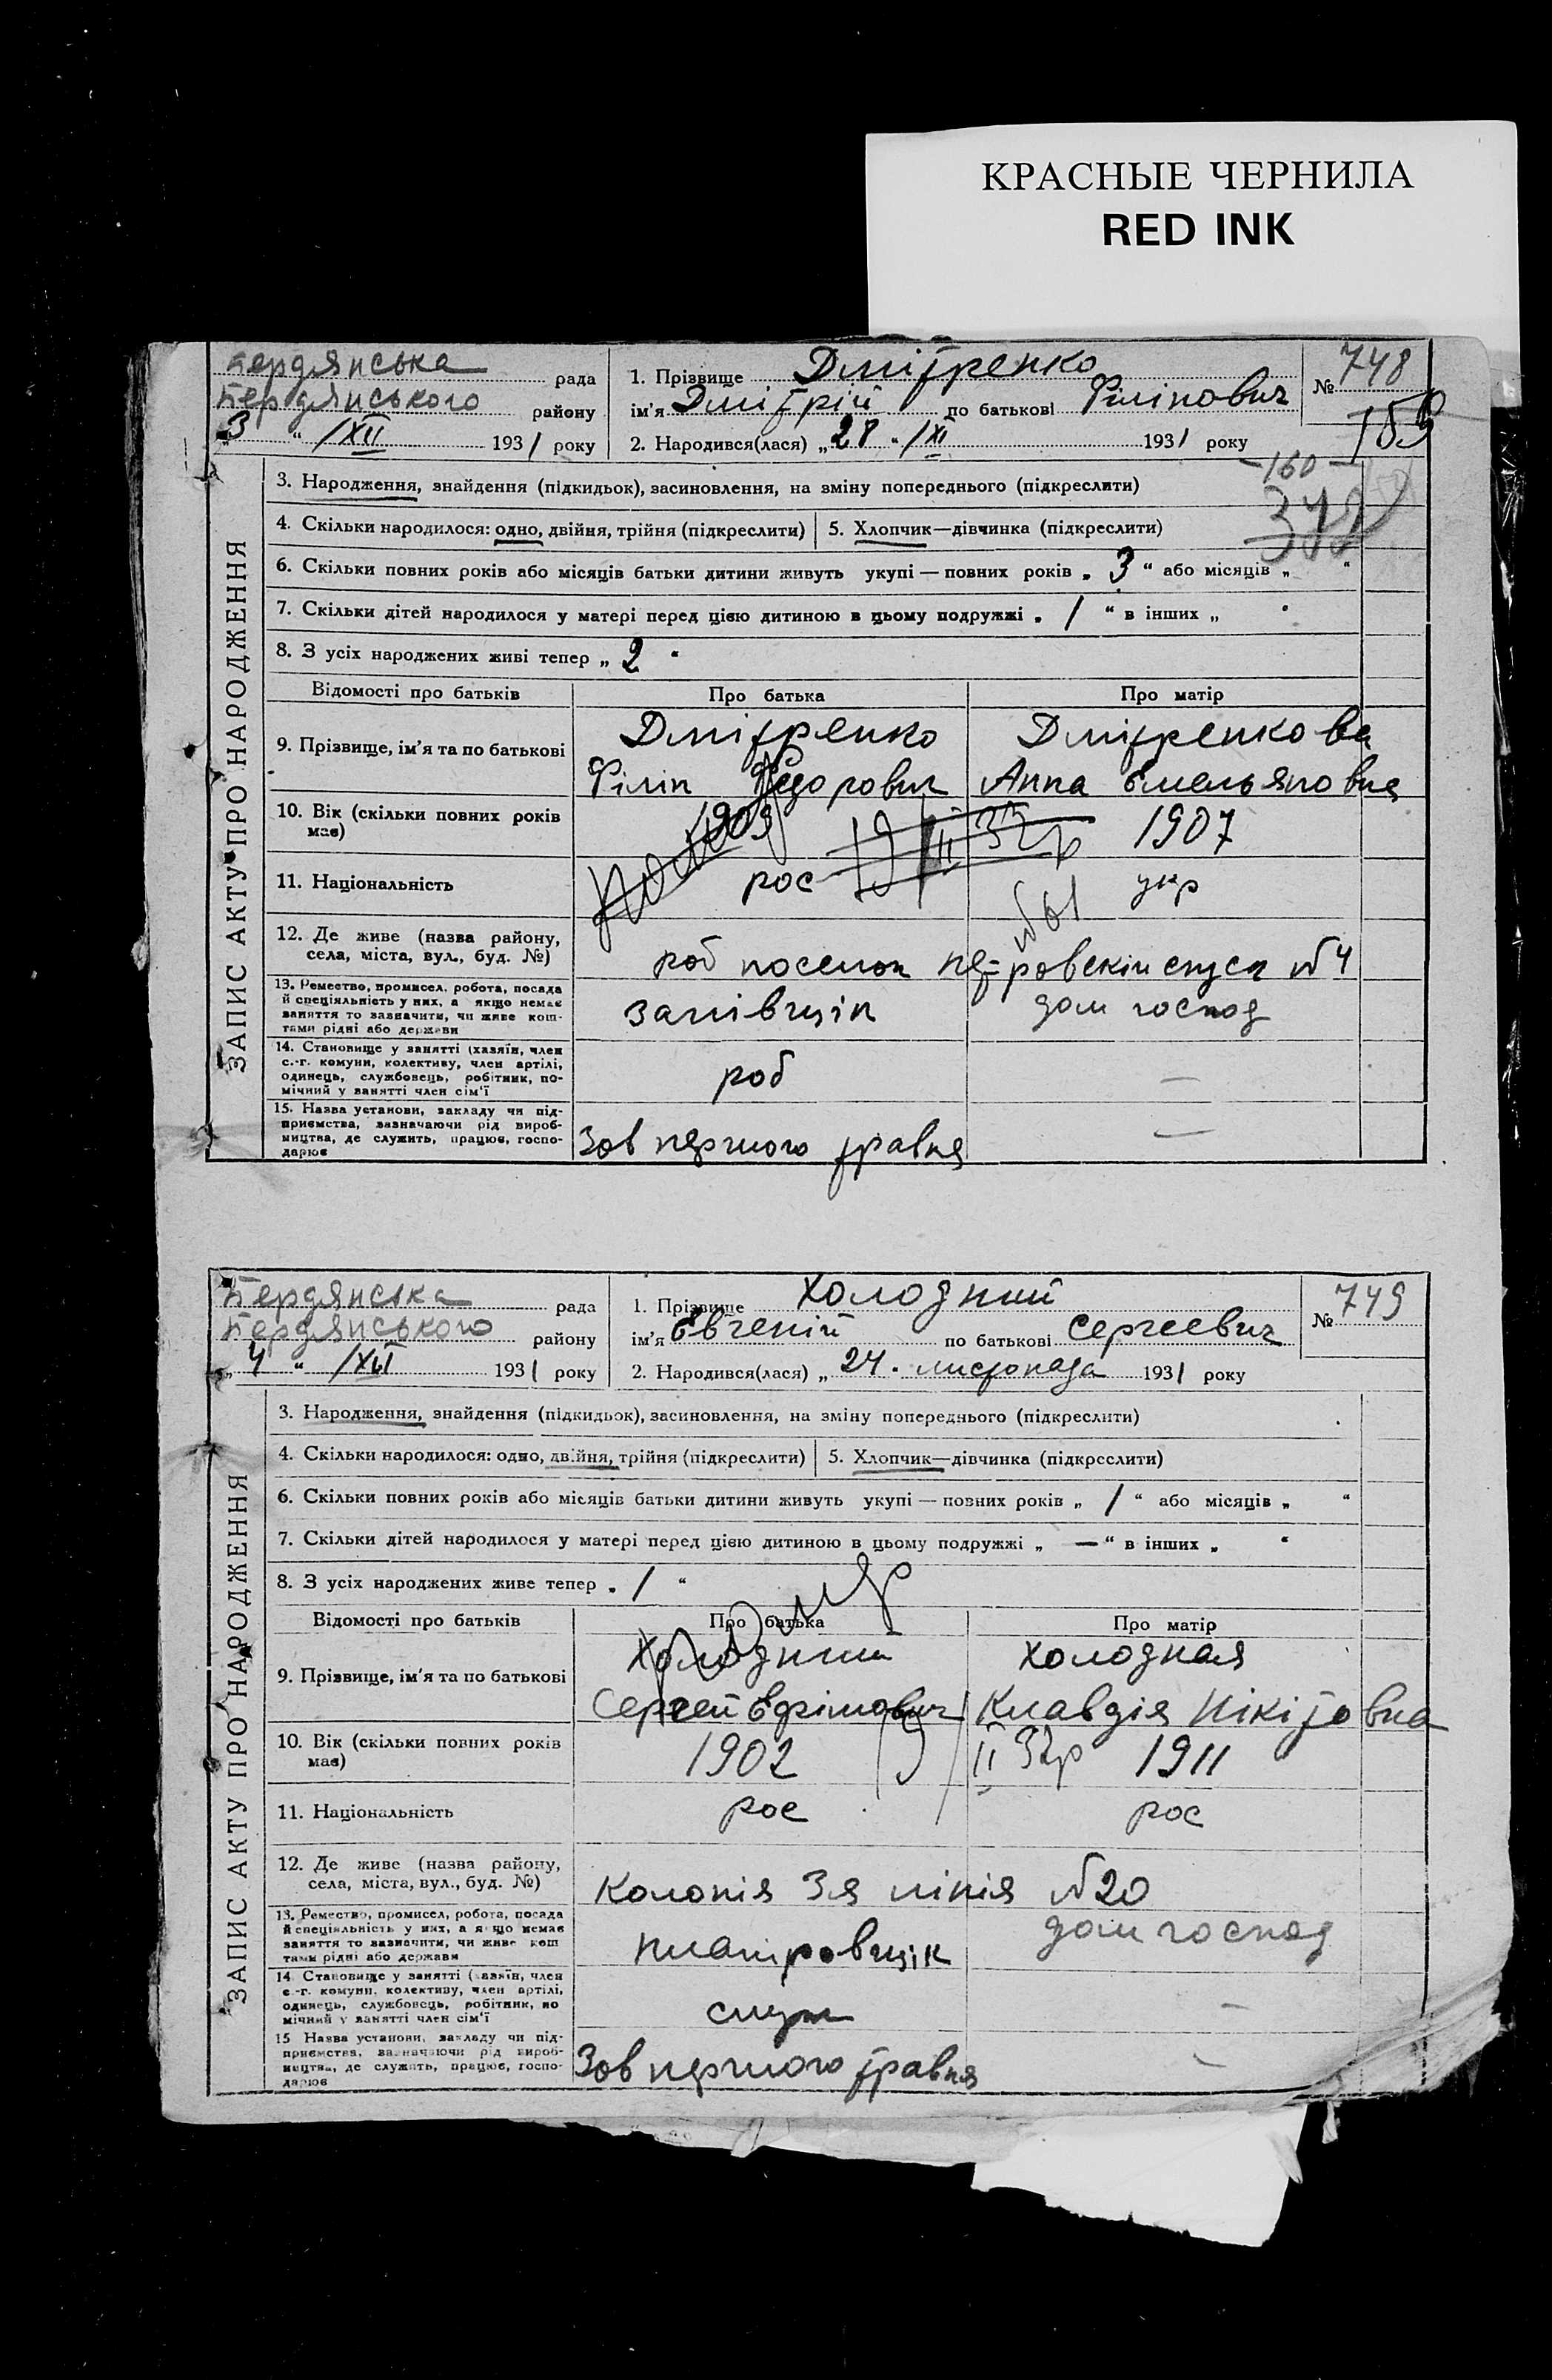 КРАСНЫЕ ЧЕРНИЛА
RED INK
Бердянська рада
Бердянського району
„3“ /XII 1931 року
1. Прізвище Дмітренко
ім'я Дмітрій по батькові Філіпович
2. Народився(лася) „28“ /XI 1931 року
№ 748
159
-160-
ЗАПИС АКТУ ПРО НАРОДЖЕННЯ
3. Народження, знайдення (підкидьок), засиновлення, на зміну попереднього (підкреслити)
4. Скільки народилося: одно, двійня, трійня (підкреслити) 5. Хлопчик—дівчинка (підкреслити)
6. Скільки повних років або місяців батьки дитини живуть укупі — повних років „ 3 “ або місяців „ “
7. Скільки дітей народилося у матері перед цією дитиною в цьому подружжі „ 1 “ в інших „ “
8. З усіх народжених живі тепер „ 2 “
Відомості про батьків Про батька Про матір
9. Прізвище, ім'я та по батькові Дмітренко Дмітренкова
Філіп Федорович Анна Емельяновна
10. Вік (скільки повних років має) 1903 1907
19 II 32р
11. Національність рос укр
№61
12. Де живе (назва району, села, міста, вул., буд. №) роб поселок Петровскій спуск №4
13. Ремество, промисел, робота, посада й спеціяльність у них, а якщо немає заняття то зазначити, чи живе коштами рідні або держави
залівщік дом господ
14. Становище у занятті (хазяїн, член с.-г. комуни, колективу, член артілі, одинець, службовець, робітник, помічний у занятті член сім'ї
роб —
15. Назва установи, закладу чи підприємства, зазначаючи рід виробництва, де служить, працює, господарює
Зов першого травня —
Бердянська рада
Бердянського району
„4“ /XII 1931 року
1. Прізвище Холодний
ім'я Євгеній по батькові Сергеевич
2. Народився(лася) „24. листопада 1931 року
№ 749
ЗАПИС АКТУ ПРО НАРОДЖЕННЯ
3. Народження, знайдення (підкидьок), засиновлення, на зміну попереднього (підкреслити)
4. Скільки народилося: одно, двійня, трійня (підкреслити) 5. Хлопчик—дівчинка (підкреслити)
6. Скільки повних років або місяців батьки дитини живуть укупі — повних років „ 1 “ або місяців „ “
7. Скільки дітей народилося у матері перед цією дитиною в цьому подружжі „ — “ в інших „ “
8. З усіх народжених живе тепер „ 1 “
Відомості про батьків Про батька Про матір
9. Прізвище, ім'я та по батькові Холодний Холодная
Сергей Ефімович Клавдія Нікітовна
10. Вік (скільки повних років має) 1902 19/II 32р 1911
11. Національність рос рос
12. Де живе (назва району, села, міста, вул., буд. №) Колонія 3я лінія №20
13. Ремество, промисел, робота, посада й спеціяльність у них, а якщо немає заняття то зазначити, чи живе коштами рідні або держави
планіровщік дом господ
14. Становище у занятті (хазяїн, член с.-г. комуни, колективу, член артілі, одинець, службовець, робітник, помічний у занятті член сім'ї
служ —
15 Назва установи, закладу чи підприємства, зазначаючи рід виробництва, де служить, працює, господарює
Зов першого травня —